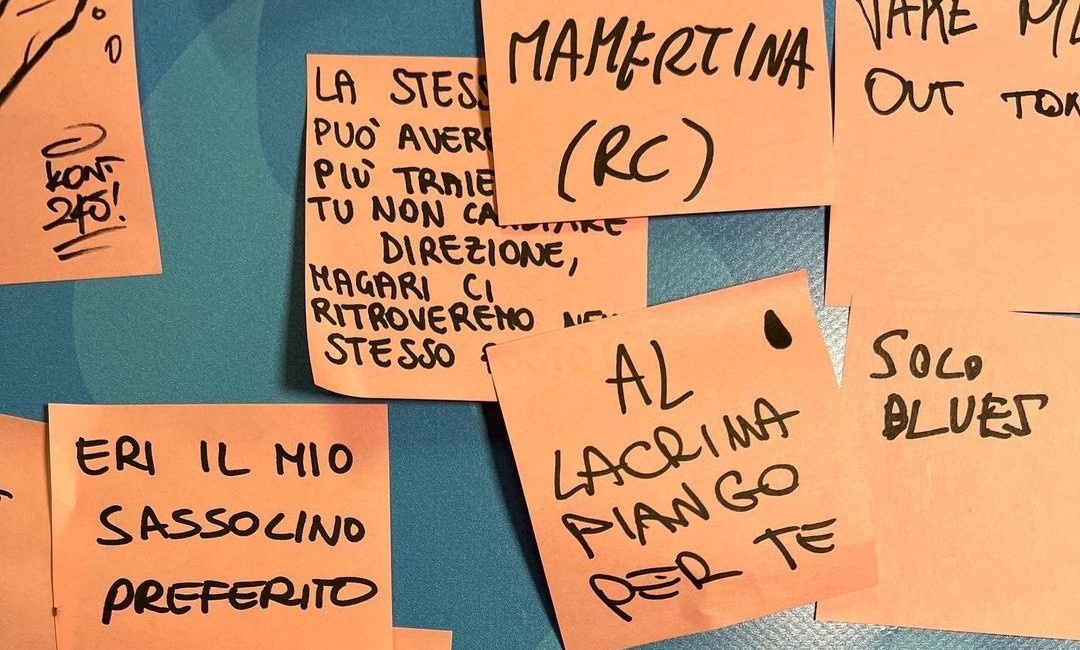 KONT
240!
LA STESS
PUÒ AVERE
PIÙ TRAIE
TU NON CAMBIARE
DIREZIONE,
MAGARI CI
RITROVEREMO
STESSO
MAMERTINA
(RC)
OUT
ERI IL MIO
SASSOLINO
PREFERITO
AL
LACRIMA
PIANGO
PER TE
SOLO
BLUES